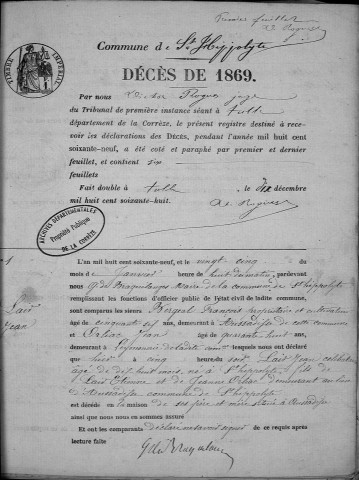 Premier feuillet
Commune de St Hippolyte
TIMBRE IMPÉRIAL
DÉCÈS DE 1869.
Par nous juge
du Tribunal de première instance séant à Tulle
département de la Corrèze, le présent registre destiné à rece-
voir les déclarations des DÉCÈS, pendant l'année mil huit cent
soixante-neuf, a été coté et paraphé par premier et dernier
feuillet, et contient six
feuillets
Fait double à Tulle, le dix décembre
mil huit cent soixante-huit.
ARCHIVES DÉPARTEMENTALES
Propriété Publique
DE LA CORRÈZE
1
Lair
Jean
L'an mil huit cent soixante-neuf, et le vingt cinq du
mois de Janvier heure de huit du matin, par devant
nous maire de la commune de St hippolyte
remplissant les fonctions d'officier public de l'état civil de ladite commune,
sont comparus les sieurs François propriétaire et cultivateur
âgé de cinquante ans, demeurant à de cette commune
et Jean âgé de quarante huit ans,
demeurant à lesquels nous ont déclaré
que hier à cinq heures du soir Lair Jean célibataire
âgé de dix huit mois, né à St hippolyte, fils de
Lair Etienne et de Jeanne demeurant au lieu
commune de St hippolyte
est décédé en la maison de ses père et mère située à
ainsi que nous nous en sommes assuré
Et ont les comparants déclaré ne savoir signer de ce requis après
lecture faite